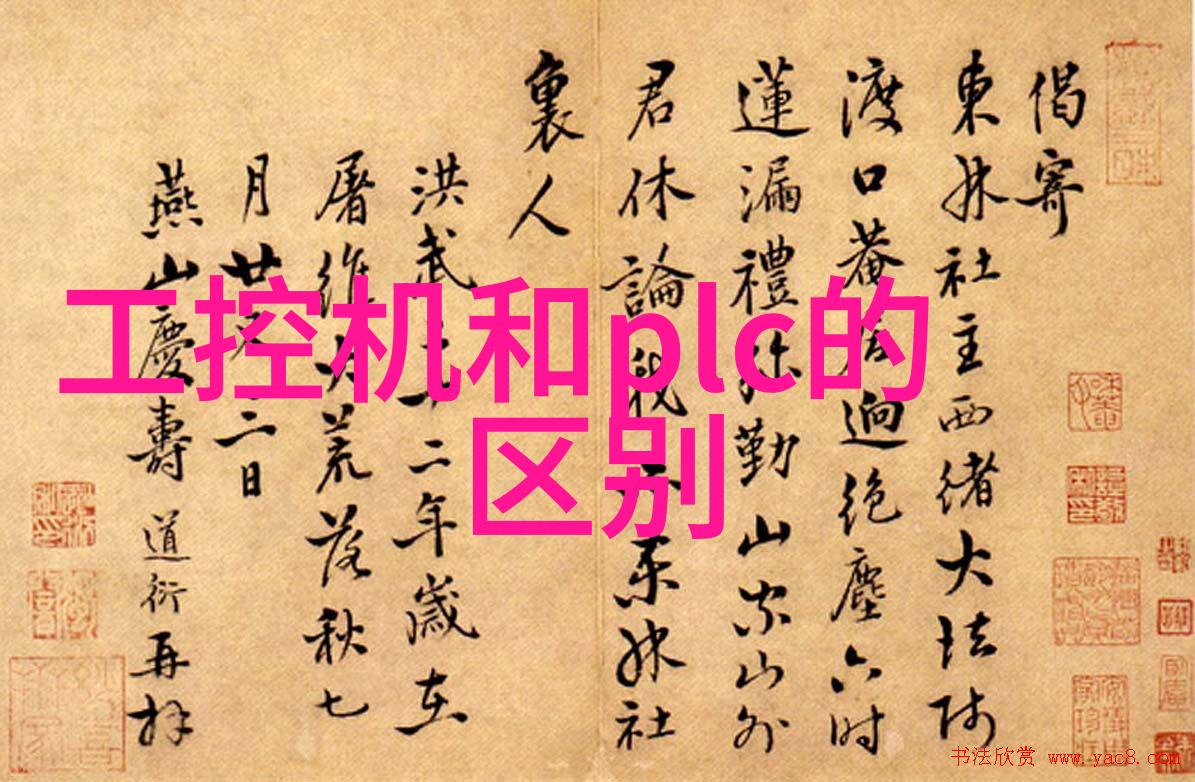 偈寄
東林社主西緒大法師
渡口菴居迥絕塵六时
蓮漏禮弥勤山家山外
君休論我亦東林社
裏人
洪武三十二年歲在
屠維大荒落秋七
月廿又二日
燕山慶壽道衍再拜
工控机和plc的
区别
书法欣赏 www.yac8.com